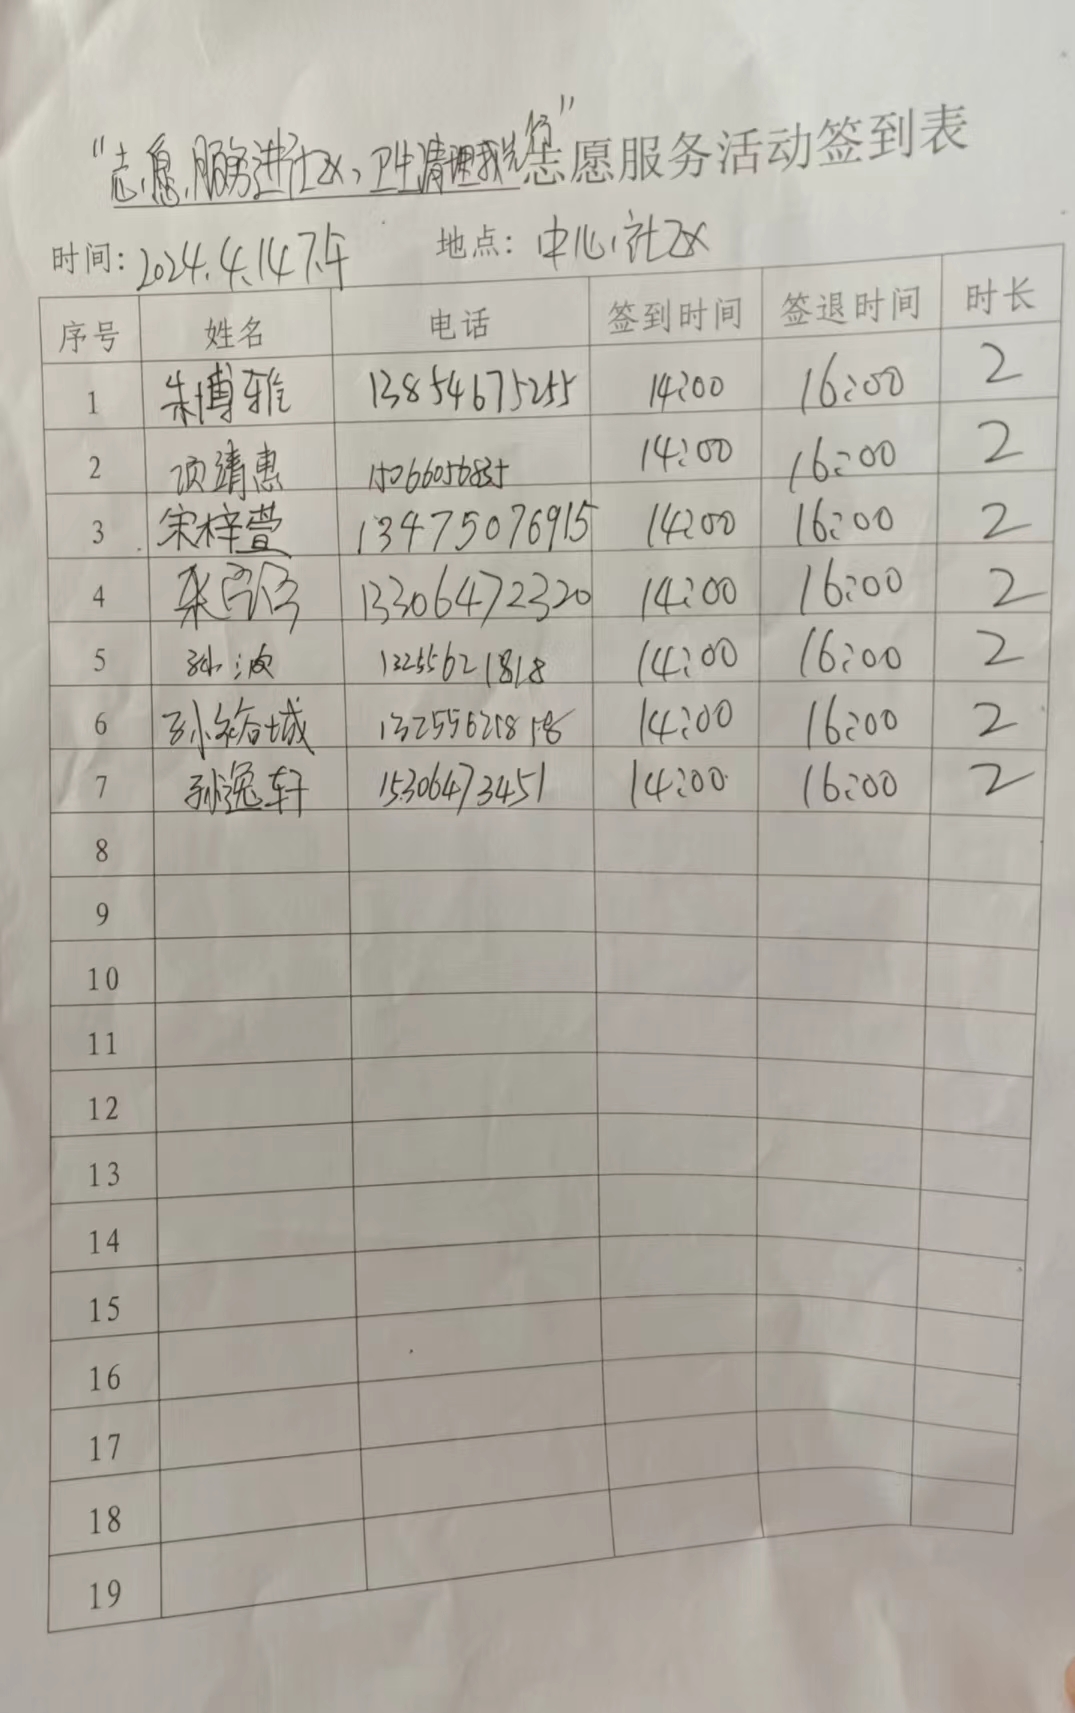 "志愿服务进社区，卫生清理我先行"志愿服务活动签到表
时间：2024.4.14下午 地点：中心社区
序号 姓名 电话 签到时间 签退时间 时长
1 朱博雅 13854675255 14:00 16:00 2
2 项靖惠 15066056835 14:00 16:00 2
3 宋梓萱 13475076915 14:00 16:00 2
4 13306472320 14:00 16:00 2
5 孙波 13255621818 14:00 16:00 2
6 孙裕城 13255621818 14:00 16:00 2
7 孙逸轩 15306473451 14:00 16:00 2
8
9
10
11
12
13
14
15
16
17
18
19